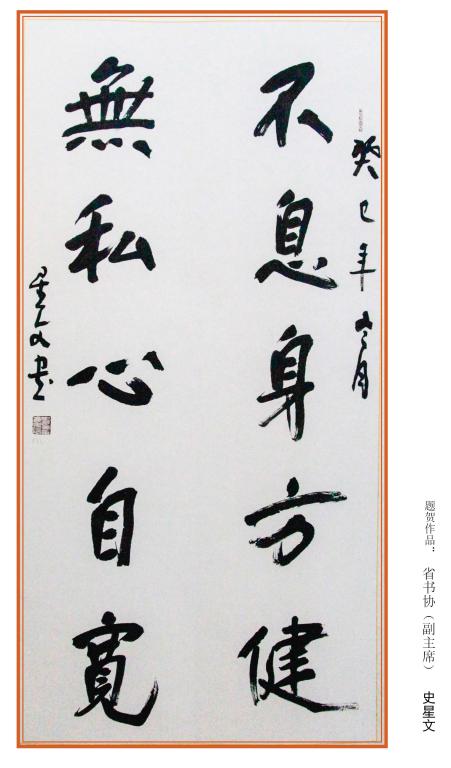 癸巳年六月
不息身方健
無私心自寬
星文书
题贺作品： 省书协（副主席） 史星文